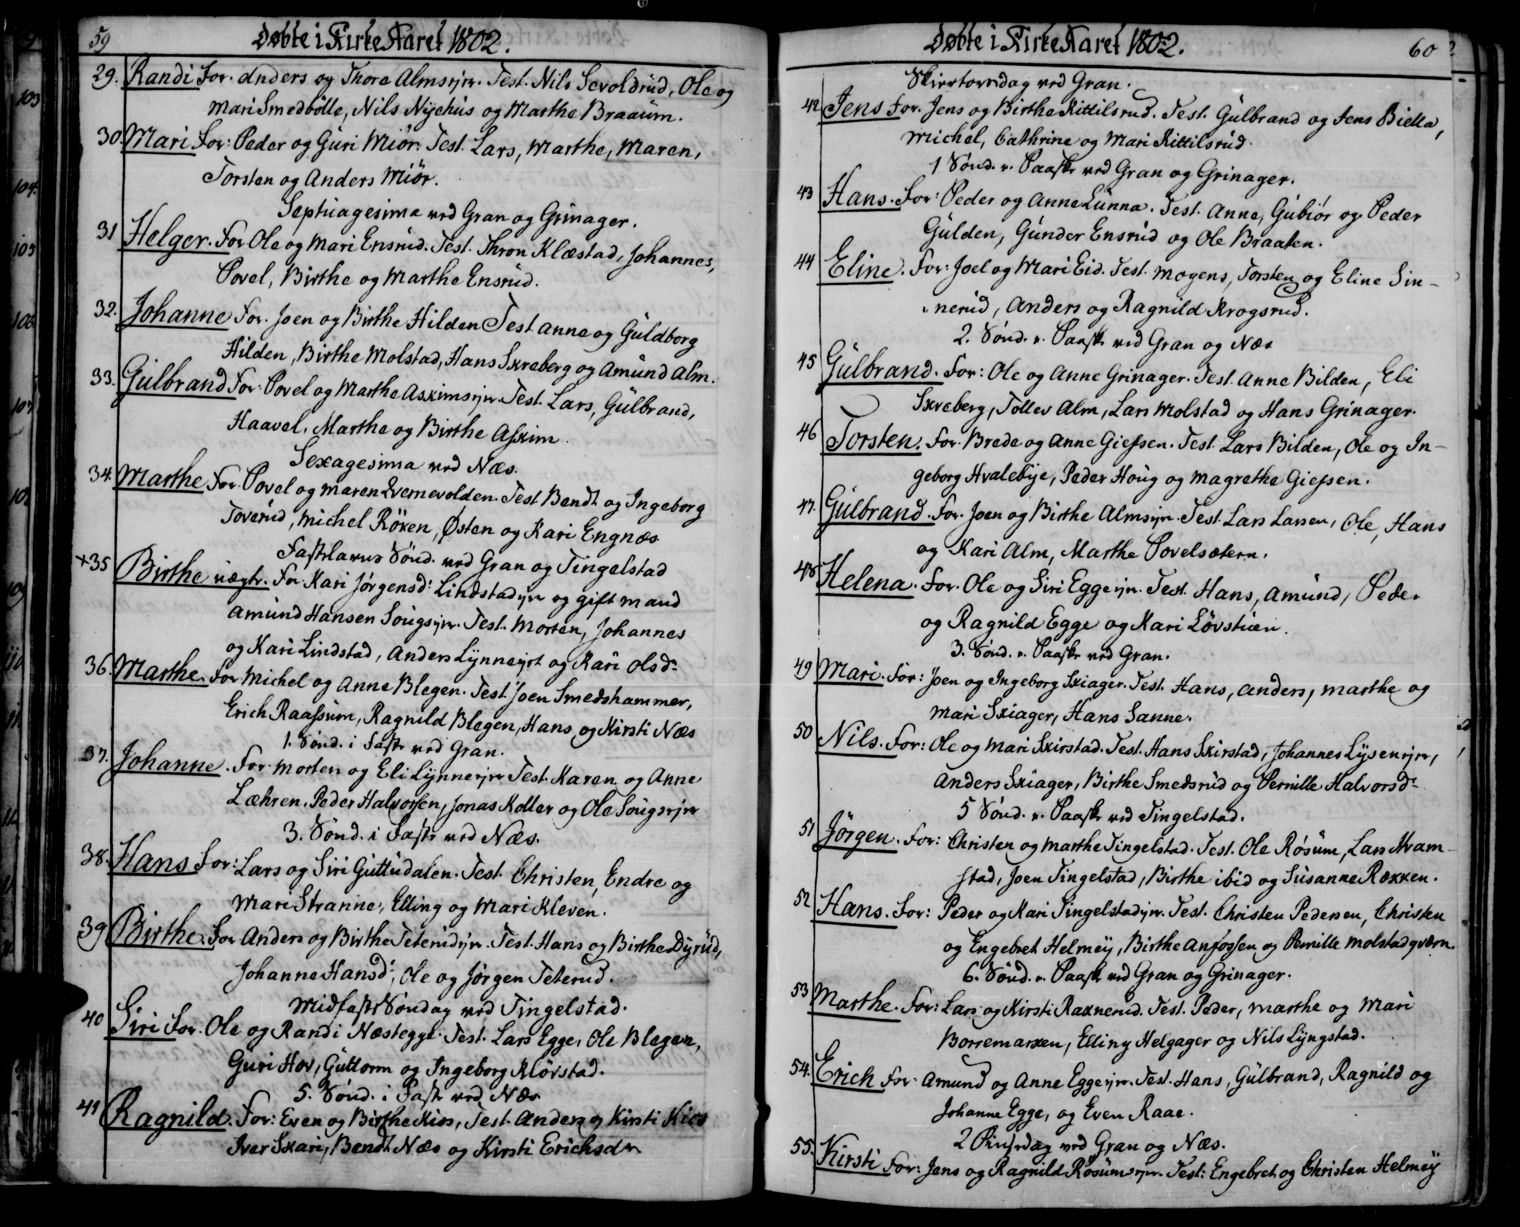 59
Døbte i Kirke Aaret 1802.
29. Randi For. Anders og Thore Almseyer. Test. Nils Sevoldrud, Ole og
Mari Smedbølle, Nils Nyehus og Marthe Braaum.
30. Mari For: Peder og Guri Miør. Test. Lars, Marthe, Maren,
Torsten og Anders Miör.
Septuagesima ved Gran og Grinager.
31 Helger. For Ole og Mari Ensrud. Test. Thron Klæstad, Johannes,
Povel, Birthe og Marthe Ensrud.
32. Johanne For. Joen og Birthe Hilden Test Anne og Guldborg
Hilden, Birthe Molstad, Hans Skreberg og Amund Alm.
33. Gulbrand For. Povel og Marthe Askimseyer. Test. Lars, Gulbrand,
Haavel, Marthe og Birthe Askim.
Sexagesima ved Næs.
34. Marthe For. Povel og Maren Qvernevolden. Test Bendt og Ingeborg
Toverud, Michel Röken, Østen og Kari Engnæs
Fastelavns Sönd. ved Gran og Tingelstad
+35 Birthe uægte. For Kari Jørgensd: Lindstadeyer og gift mand
Amund Hansen Sougseyer. Test. Morten, Johannes
og Kari Lindstad, Anders Lynneyet og Kari Olsd:
36. Marthe. For Michel og Anne Blegen. Test Joen Smedshammer,
Erich Raassum, Ragnild Blegen, Hans og Kirsti Næs
1. Sönd. i Fast ved Gran.
37. Johanne. For. Morten og Eli Lynneeyer Test. Karen og Anne
Læhren, Peder Halvorsen, Jonas Koller og Ole Sougseyer
3. Sönd. i Fast ved Næs.
38. Hans For: Lars og Siri Guttudalen. Test. Christen, Endre og
Mari Stranne, Elling og Mari Kleven.
39 Birthe. For Anders og Birthe Teterudeyer. Test. Hans og Birthe Dyrud,
Johanne Hansd: Ole og Jørgen Teterud.
Midfaste Söndag ved Tingelstad.
40 Siri For. Ole og Randi Næsteggl. Test. Lars Egge, Ole Blegen,
Guri Hov, Guttorm og Ingeborg Klövstad.
5. Sönd. i Fast ved Næs
41 Ragnild. For: Even og Birthe Kios, Test. Anders og Kirsti Kios
Iver Skari, Bendt Næs og Kirsti Erichsd
60
Døbte i Kirke Aaret 1802.
Skiertorsdag ved Gran.
42 Jens For. Jens og Birthe Kittilsrud. Test. Gulbrand og Jens Bielka,
Michel, Cathrine og Mari Kittilsrud.
1 Sönd. e. Paaske ved Gran og Grinager.
43 Hans. For: Peder og Anne Lunna. Test. Anne, Gubiör og Peder
Gulden, Gunder Ensrud og Ole Braaten.
44 Eline. For: Joel og Mari Eid. Test. Mogens, Torsten og Eline Sin-
nerud, Anders og Ragnild Krogsrud.
2. Sönd. e. Paaske ved Gran og Næs
45 Gulbrand. For: Ole og Anne Grinager. Test. Anne Bilden, Eli
Skreberg, Tollev Alm, Lars Molstad og Hans Grinager.
46 Torsten. For. Brede og Anne Giefsen. Test. Lars Bilden, Ole og In-
geborg Hvalebye, Peder Houg og Magrethe Giefsen.
47. Gulbrand. For. Joen og Birthe Almseyer. Test. Lars Larsen, Ole, Hans
og Kari Alm, Marthe Povelsætern.
48 Helena. For. Ole og Siri Eggeeyer. Test. Hans, Amund, Peder
og Ragnild Egge og Kari Lövstuen.
3. Sönd. e. Paaske ved Gran.
49 Mari. For: Joen og Ingeborg Skiager. Test. Hans, Anders, Marthe og
Mari Skiager, Hans Sanne.
50 Nils. For: Ole og Mari Skirstad. Test. Hans Skirstad, Johannes Lyseneyer,
Anders Skiager, Birthe Smedsrud og Pernille Halvorsd:
5 Sönd. e. Paaske ved Tingelstad.
51 Jörgen. For: Christen og Marthe Tingelstad. Test. Ole Rösum, Lars Hvam-
stad, Joen Tingelstad, Birthe ibid og Susanne Røkken.
52 Hans. For: Peder og Kari Tingelstadeyer. Test. Christen Pedersen, Christen
og Engebret Helmey, Birthe Anfossen og Pernille Molstadqværn.
6. Sönd. e. Paaske ved Gran og Grinager.
53 Marthe. For: Lars og Kirsti Raknerud. Test. Peder, Marthe og Mari
Borremarken, Elling Helgager og Nils Lyngstad.
54. Erich For. Amund og Anne Eggeeyer. Test. Hans, Gulbrand, Ragnild og
Johanne Egge, og Even Raae.
2 Pinsedag ved Gran og Næs.
55. Kirsti For: Jens og Ragnild Røsumseyer. Test: Engebret og Christen Helmey